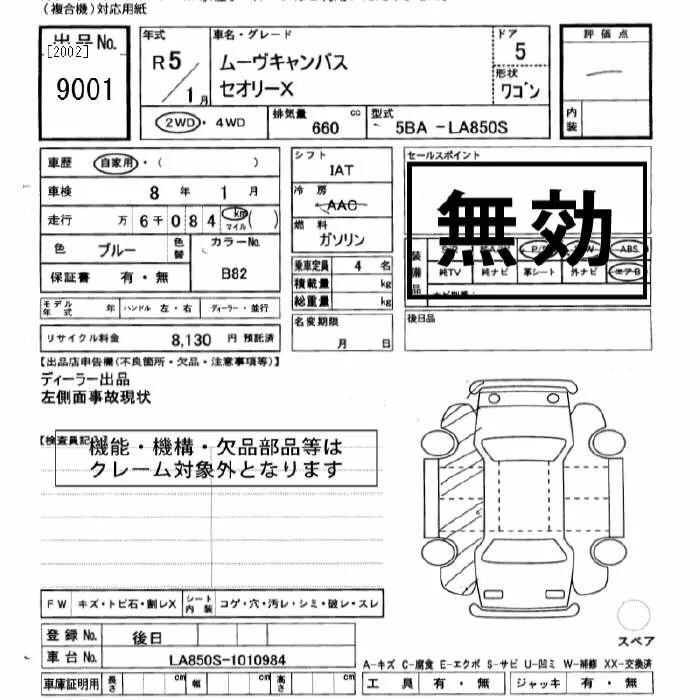 (複合機)対応用紙
出品No.
[2002]
9001
年式
R5
1月
車名・グレード
ムーヴキャンバス
セオリーX
ドア
5
形状
ワゴン
評価点
内装
2WD・4WD
排気量
660
cc
型式
5BA -LA850S
車歴
自家用・( )
車検
8 年 1 月
走行
万 6千 0 8 4
km
マイル
( )
色
ブルー
色替
カラーNo.
B82
保証書 有・無
シフト
IAT
冷房
AAC
燃料
ガソリン
乗車定員 4 名
積載量 kg
総重量 kg
セールスポイント
無効
装備品
P/S
ABS
純TV
純ナビ
革シート
外ナビ
エアB
モデル年式 年
ハンドル 左・右
ディーラー・並行
リサイクル料金 8,130 円 預託済
名変期限
月 日
後日品
【出品店申告欄(不良箇所・欠品・注意事項等)】
ディーラー出品
左側面事故現状
【検査員記入】
機能・機構・欠品部品等は
クレーム対象外となります
FW キズ・トビ石・割レX
シート内装
コゲ・穴・汚レ・シミ・破レ・スレ
登録No. 後日
車台No. LA850S-1010984
車庫証明用
長さ cm
幅 cm
高さ cm
スペア
A-キズ C-腐食 E-エクボ S-サビ U-凹ミ W-補修 XX-交換済
工具 有・無
ジャッキ 有・無